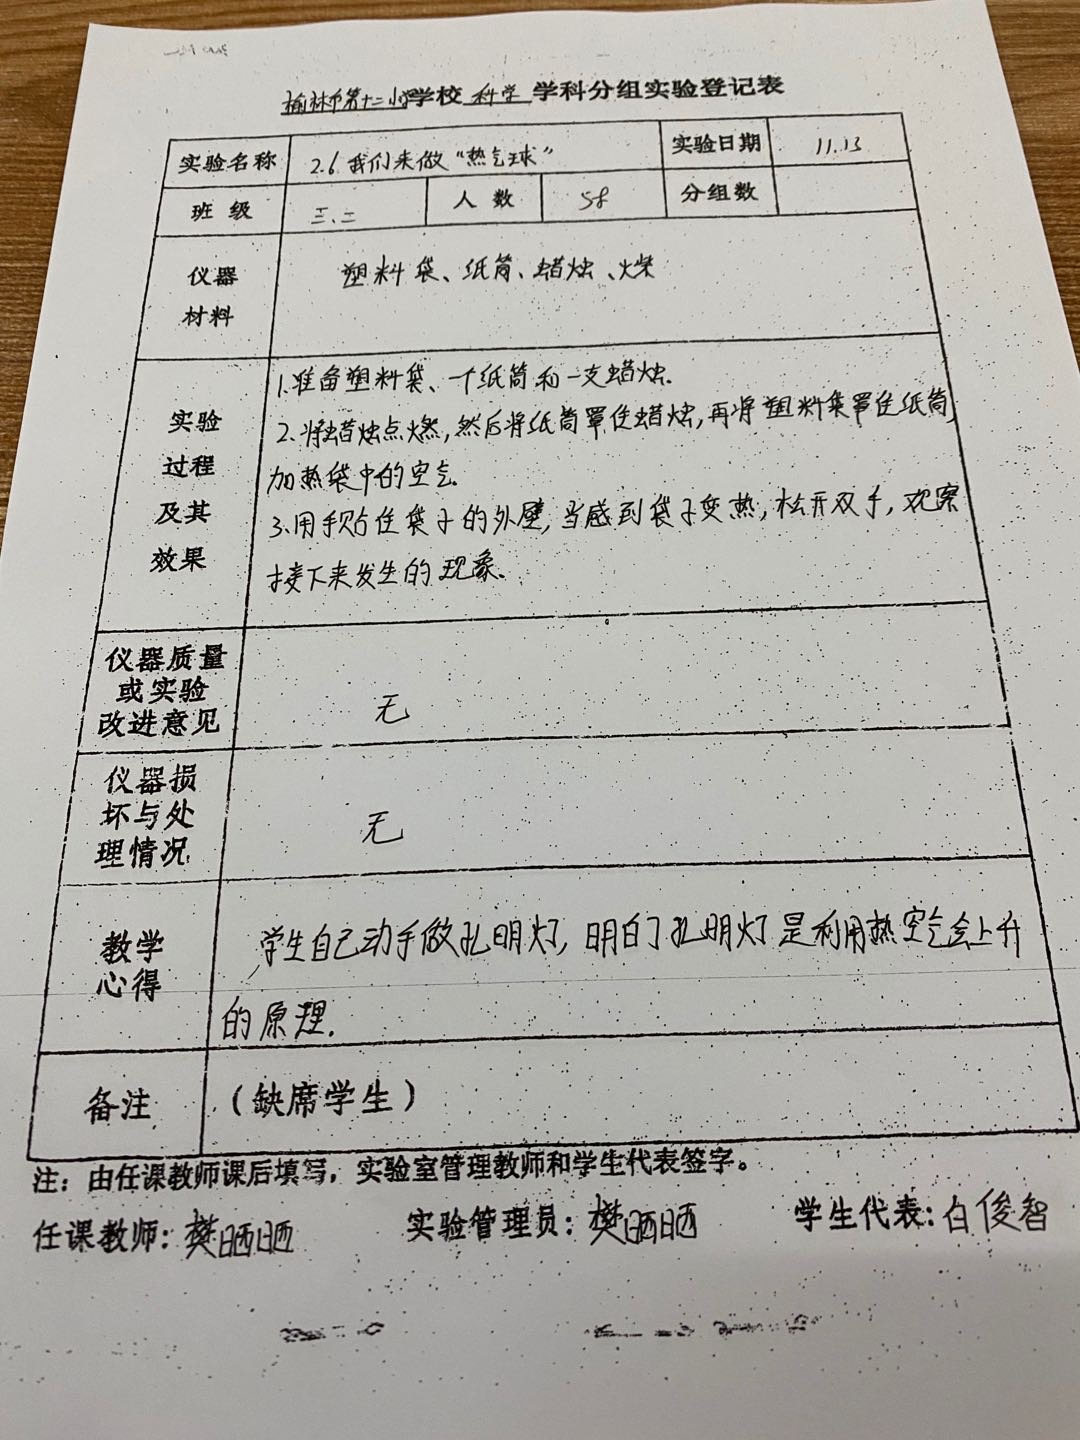 榆林市第十二小学校 科学 学科分组实验登记表
实验名称 2.6 我们来做“热气球” 实验日期 11.13
班级 三.二 人数 58 分组数
仪器材料 塑料袋、纸筒、蜡烛、火柴
实验过程及其效果
1.准备塑料袋、一个纸筒和一支蜡烛.
2.将蜡烛点燃,然后将纸筒罩住蜡烛,再将塑料袋罩住纸筒,
加热袋中的空气.
3.用手贴住袋子的外壁,当感到袋子变热,松开双手,观察
接下来发生的现象.
仪器质量或实验改进意见 无
仪器损坏与处理情况 无
教学心得
学生自己动手做孔明灯,明白了孔明灯是利用热空气会上升
的原理.
备注 (缺席学生)
注:由任课教师课后填写,实验室管理教师和学生代表签字。
任课教师:樊晒晒 实验管理员:樊晒晒 学生代表:白俊智